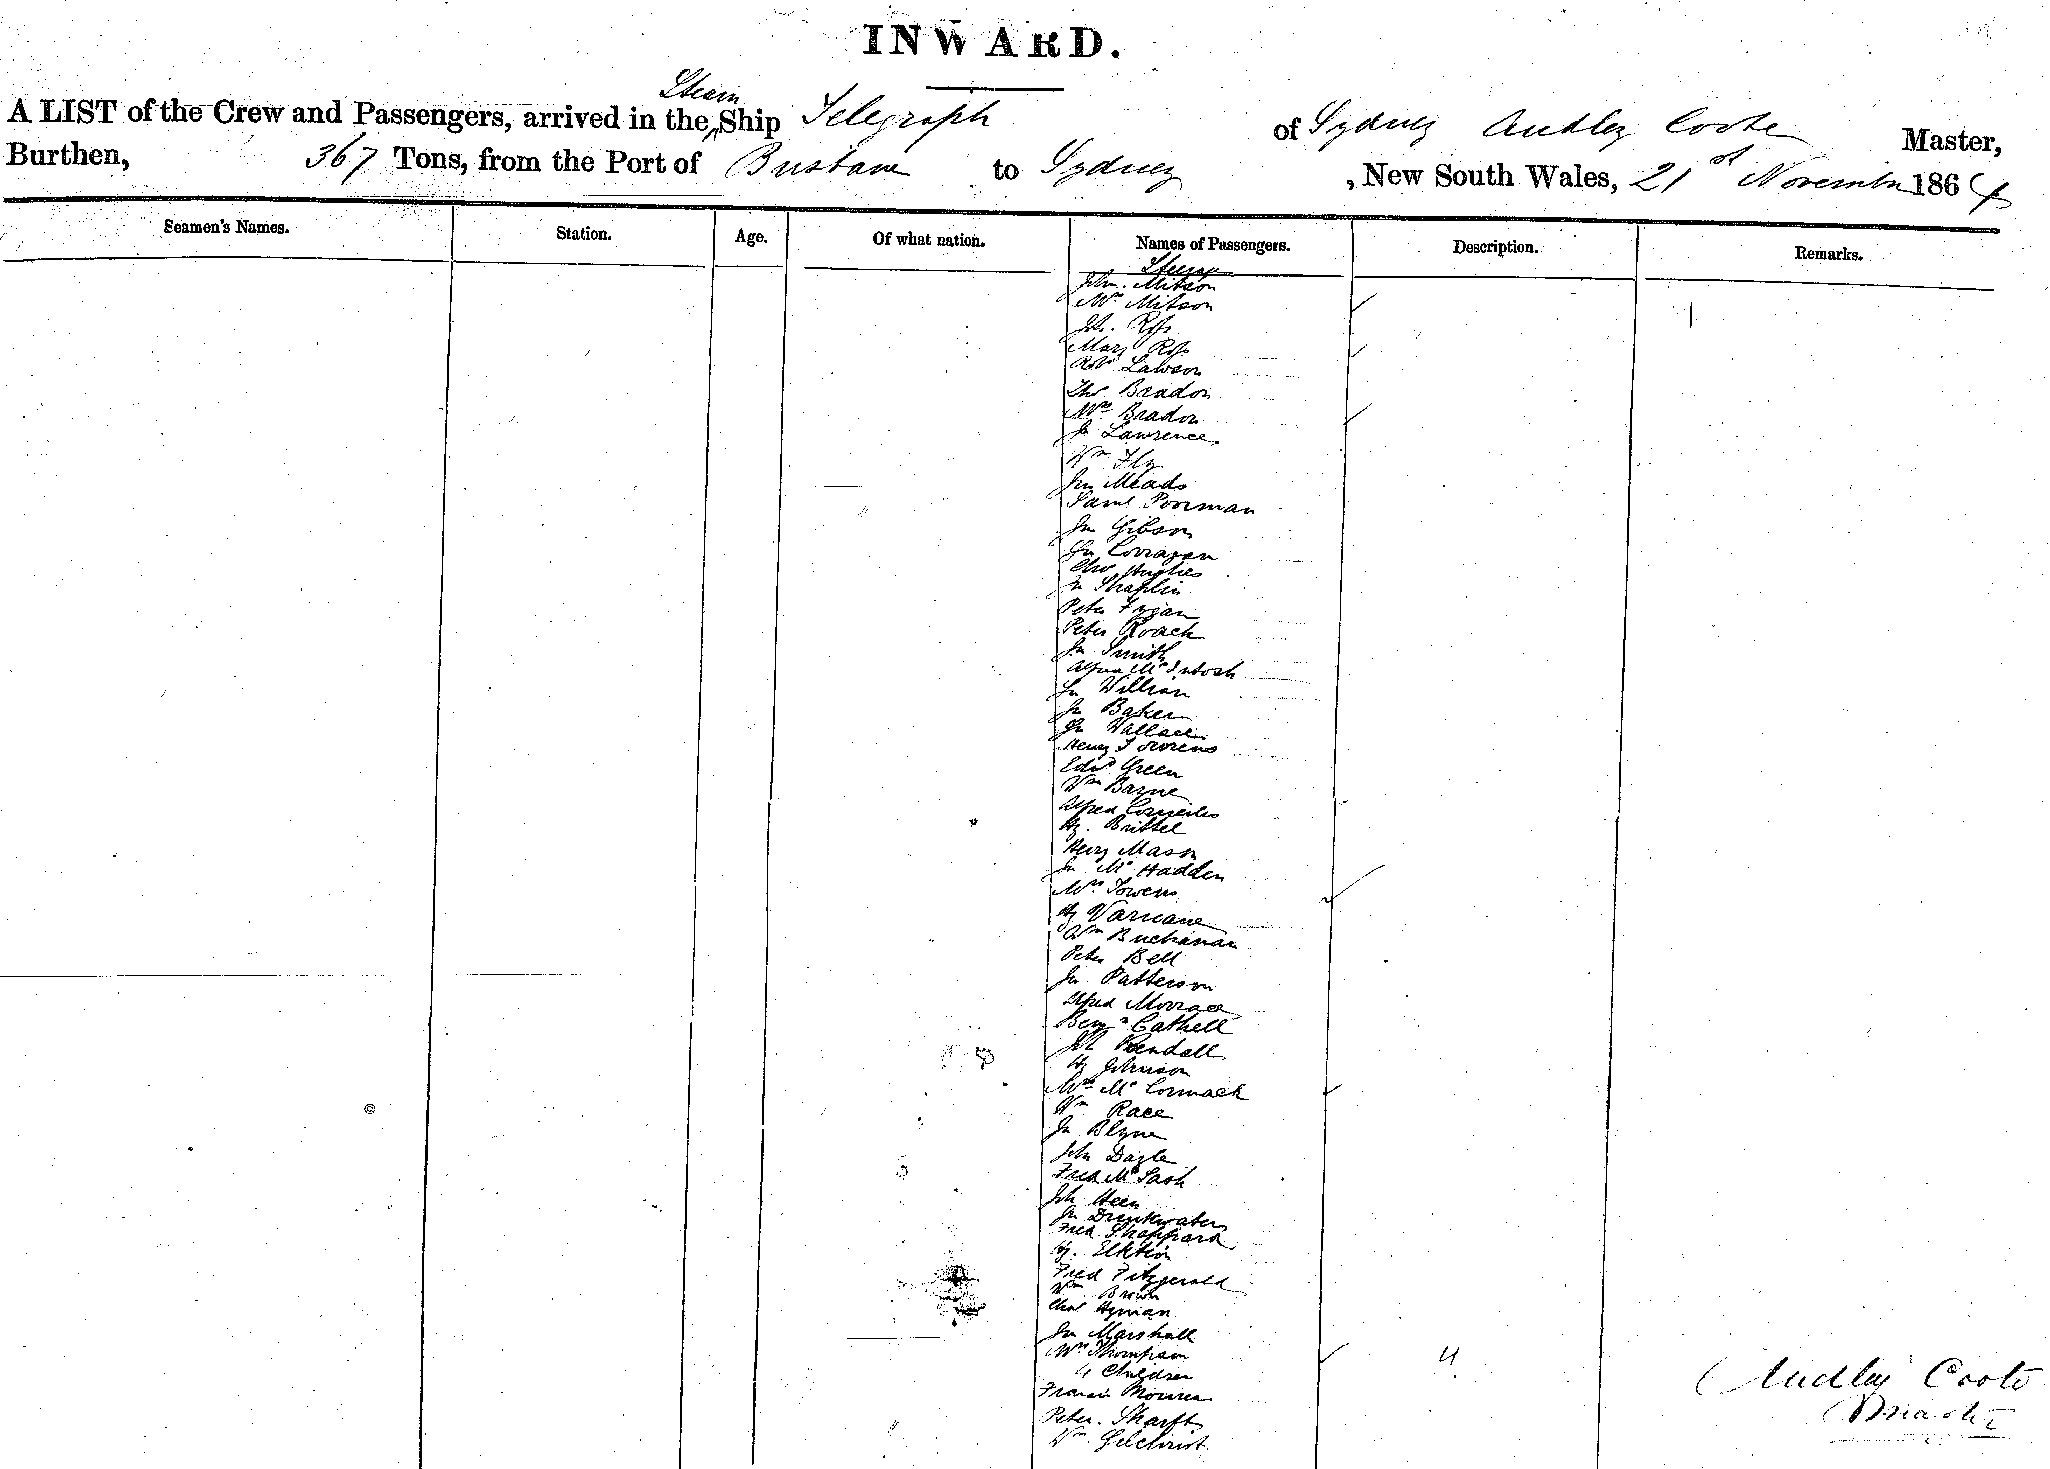 INWARD.
A LIST of the Crew and Passengers, arrived in the Steam Ship Telegraph of Sydney Audley Coote Master,
Burthen, 367 Tons, from the Port of Brisbane to Sydney, New South Wales, 21st November 1864
Seamen's Names. Station. Age. Of what nation. Names of Passengers. Description. Remarks.
Steerage
John Mitson
Mrs Mitson
Jn. Ross
Mary Ross
Robt Lawson
Thos Bradon
Mrs Bradon
Jn Lawrence
Wm Fly
Jn Meads
Saml Poorman
Jn Gibson
Jn Corragan
Chas Hughes
Jn Shaplin
Peter Fygan
Peter Roach
Jn Smith
Alfred McIntosh
Jn Willian
Jn Baker
Jn Wallace
Henry Towens
Edwd Green
Wm Bayne
Alfred Corneiles
Hy. Brittel
Henry Mason
Jn McHadden
Mrs Towens
Hy Varicane
Wm Buchanan
Peter Bell
Jn Patterson
Alfred
Benjn Cathell
Jn Rendall
Hy Johnson
Mrs McCormack
Wm Race
Jn Blyne
John Dayle
Fred McLash
Jn Heen
Jn Drinkwater
Fred Sheppard
Hy. Elktion
Fred Fitzgerald
Wm Brown
Chas Hyman
Jn Marshall
Mrs Thompson
4 Children 4
Francis
Peter. Sharft
Wm Gilchrist
Audley Coote
Master